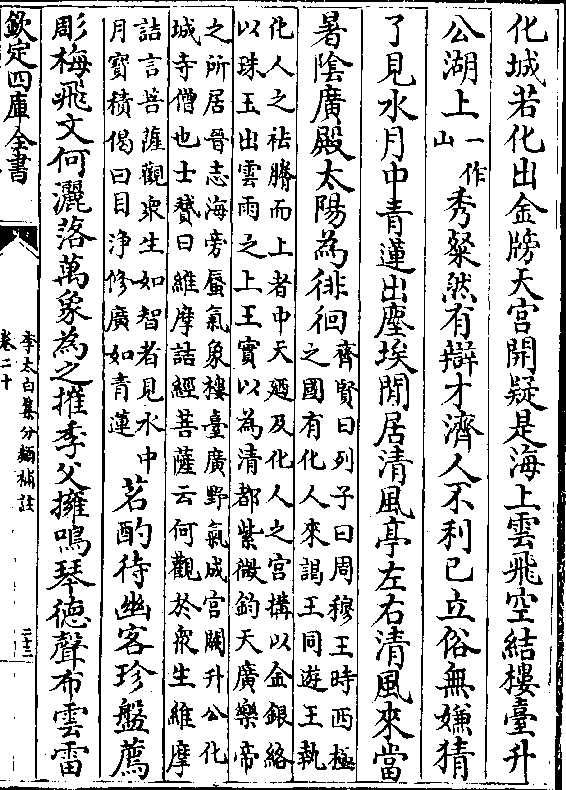 化城若化出金牓天宮開疑是海上雲飛空結樓臺升
公湖上一作山秀粲然有辯才濟人不利己立俗無嫌猜
了見水月中青蓮出塵埃閒居清風亭左右清風來當
暑陰廣殿太陽為徘徊齊賢曰列子曰周穆王時西極之國有化人來謁王同遊王執
化人之袪騰而上者中天廼及化人之宮構以金銀絡以珠玉出雲雨之上王實以為清都紫微鈞天廣樂帝
之所居晉志海旁蜃氣象樓臺廣野氣成宮闕升公化城寺僧也士贇曰維摩詰經菩薩云何觀於衆生維摩
詰言菩薩觀衆生如智者見水中月寶積偈曰目淨修廣如青蓮茗酌待幽客珍盤薦
彫梅飛文何灑落萬象為之摧季父擁鳴琴德聲布雲雷
欽定四庫全書
李太白集分類補註
卷二十
二十三